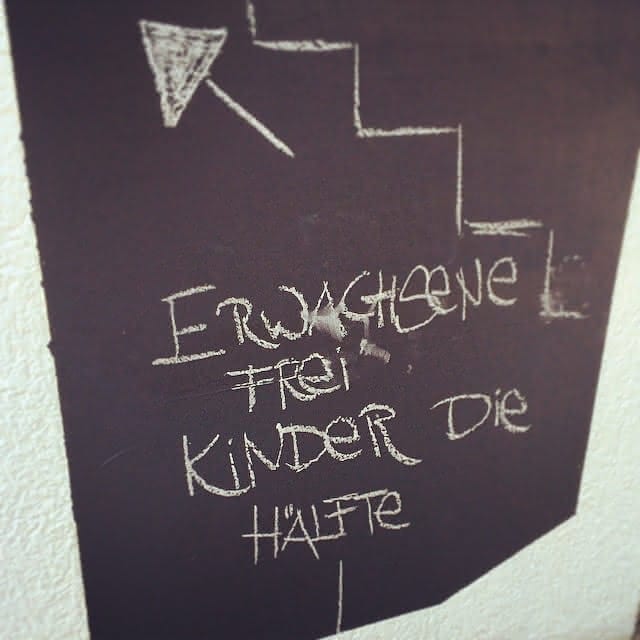 ERWACHSENE
FREi
KiNDER DiE
HÄLFTE